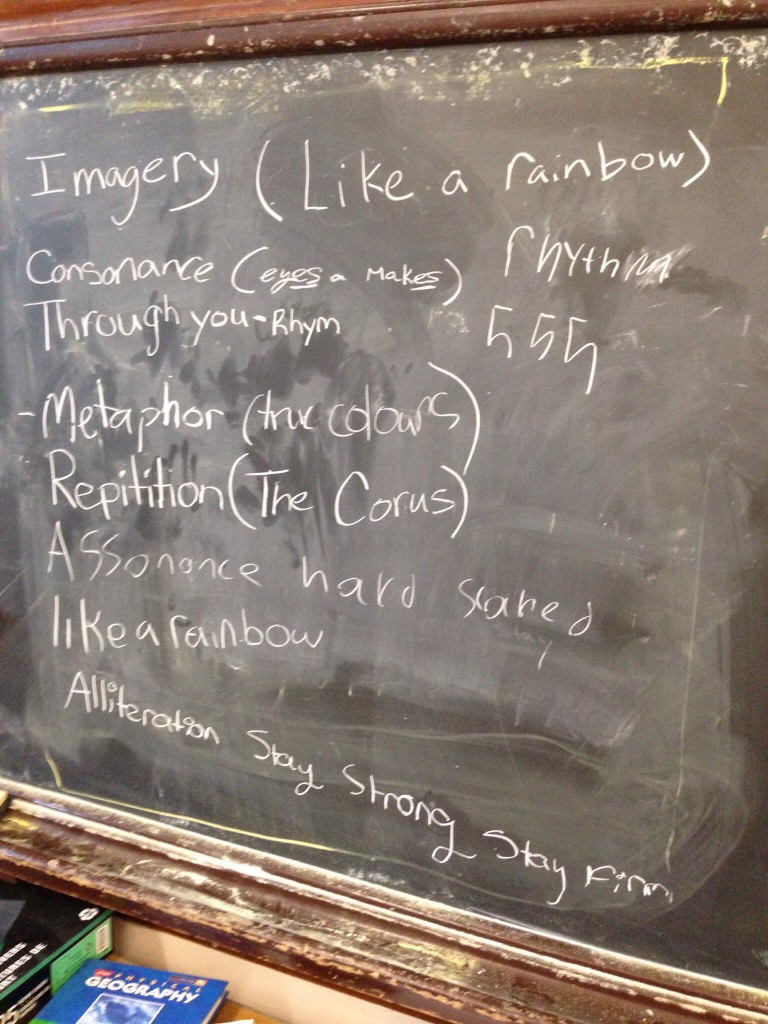 Imagery (Like a rainbow)
Consonance (eyes a makes)
rhythm
Through you-Rhym
-Metaphor (true colours)
Repitition (The Corus)
Assonance hard scared
stay
like a rainbow
Alliteration Stay Strong Stay Firm
PHYSICAL
GEOGRAPHY